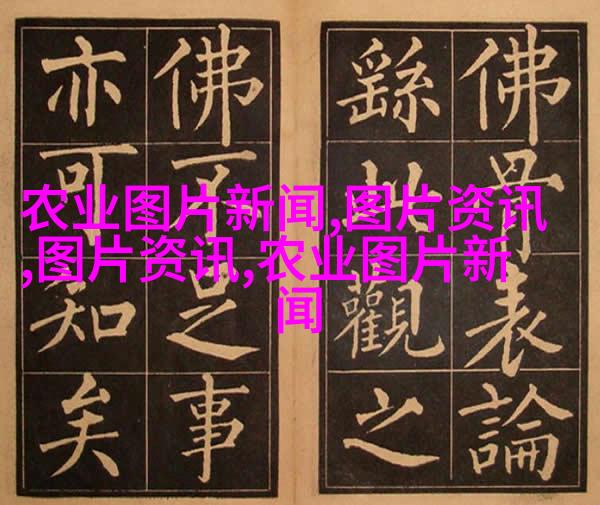 农业图片新闻,图片资讯
,图片资讯,农业图片新
闻
佛骨表論
繇此觀之
佛不足事
亦可知矣